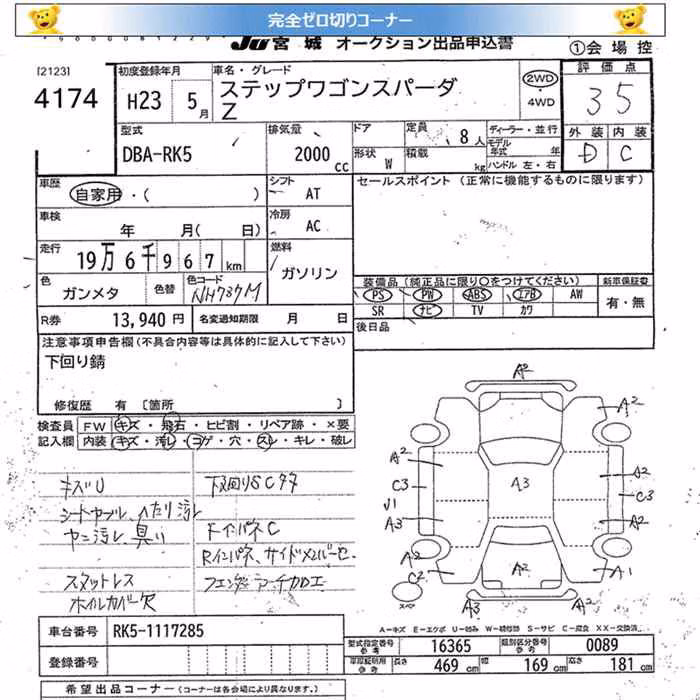 完全ゼロ切りコーナー
JU 宮城 オークション出品申込書
①会場控
[2123]
4174
初度登録年月
H23 5月
車名・グレード
ステップワゴンスパーダ
Z
2WD
4WD
評価点
35
外装 内装
D C
型式
DBA-RK5
排気量
2000cc
ドア
形状 W
定員 8人
積載 kg
ディーラー・並行
モデル年式 年
ハンドル 左・右
車歴
自家用・( )
シフト
AT
セールスポイント (正常に機能するものに限ります)
車検
年 月( 日)
冷房
AC
走行
19万6千967km
燃料
ガソリン
色
ガンメタ
色替
色コード
NH737M
装備品 (純正品に限り○をつけてください)
新車保証書
PS PW ABS エアB AW
SR ナビ TV カワ
有・無
R券 13,940円
名変通知期限 月 日
後日品
注意事項申告欄 (不具合内容等は具体的に記入して下さい)
下回り錆
修復歴 有 [箇所 ]
検査員記入欄
FW キズ・飛石・ヒビ割・リペア跡・×要
内装 キズ・汚レ・コゲ・穴・スレ・キレ・破レ
キズU
シートヤブレ、ヘたり汚レ
ヤニ汚レ 臭い
スタットレス
ホイルカバー欠
下回りSCササ
FインパネC
Rインパネ、サイドメンバーC
フェンダーアーチカロエ
A2
A2
A2
C3
J1
A3
A2
C2
スペア
A3
A3
A2
A2
A2
C3
A2
A1
A=キズ E=エクボ U=凹み W=補修跡 S=サビ C=腐食 XX=交換済
車台番号 RK5-1117285
登録番号
型式指定番号 参考 16365
類別区分番号 参考 0089
車庫証明用 参考
長さ 469cm
幅 169cm
高さ 181cm
希望出品コーナー (コーナーは各会場により異なります。)